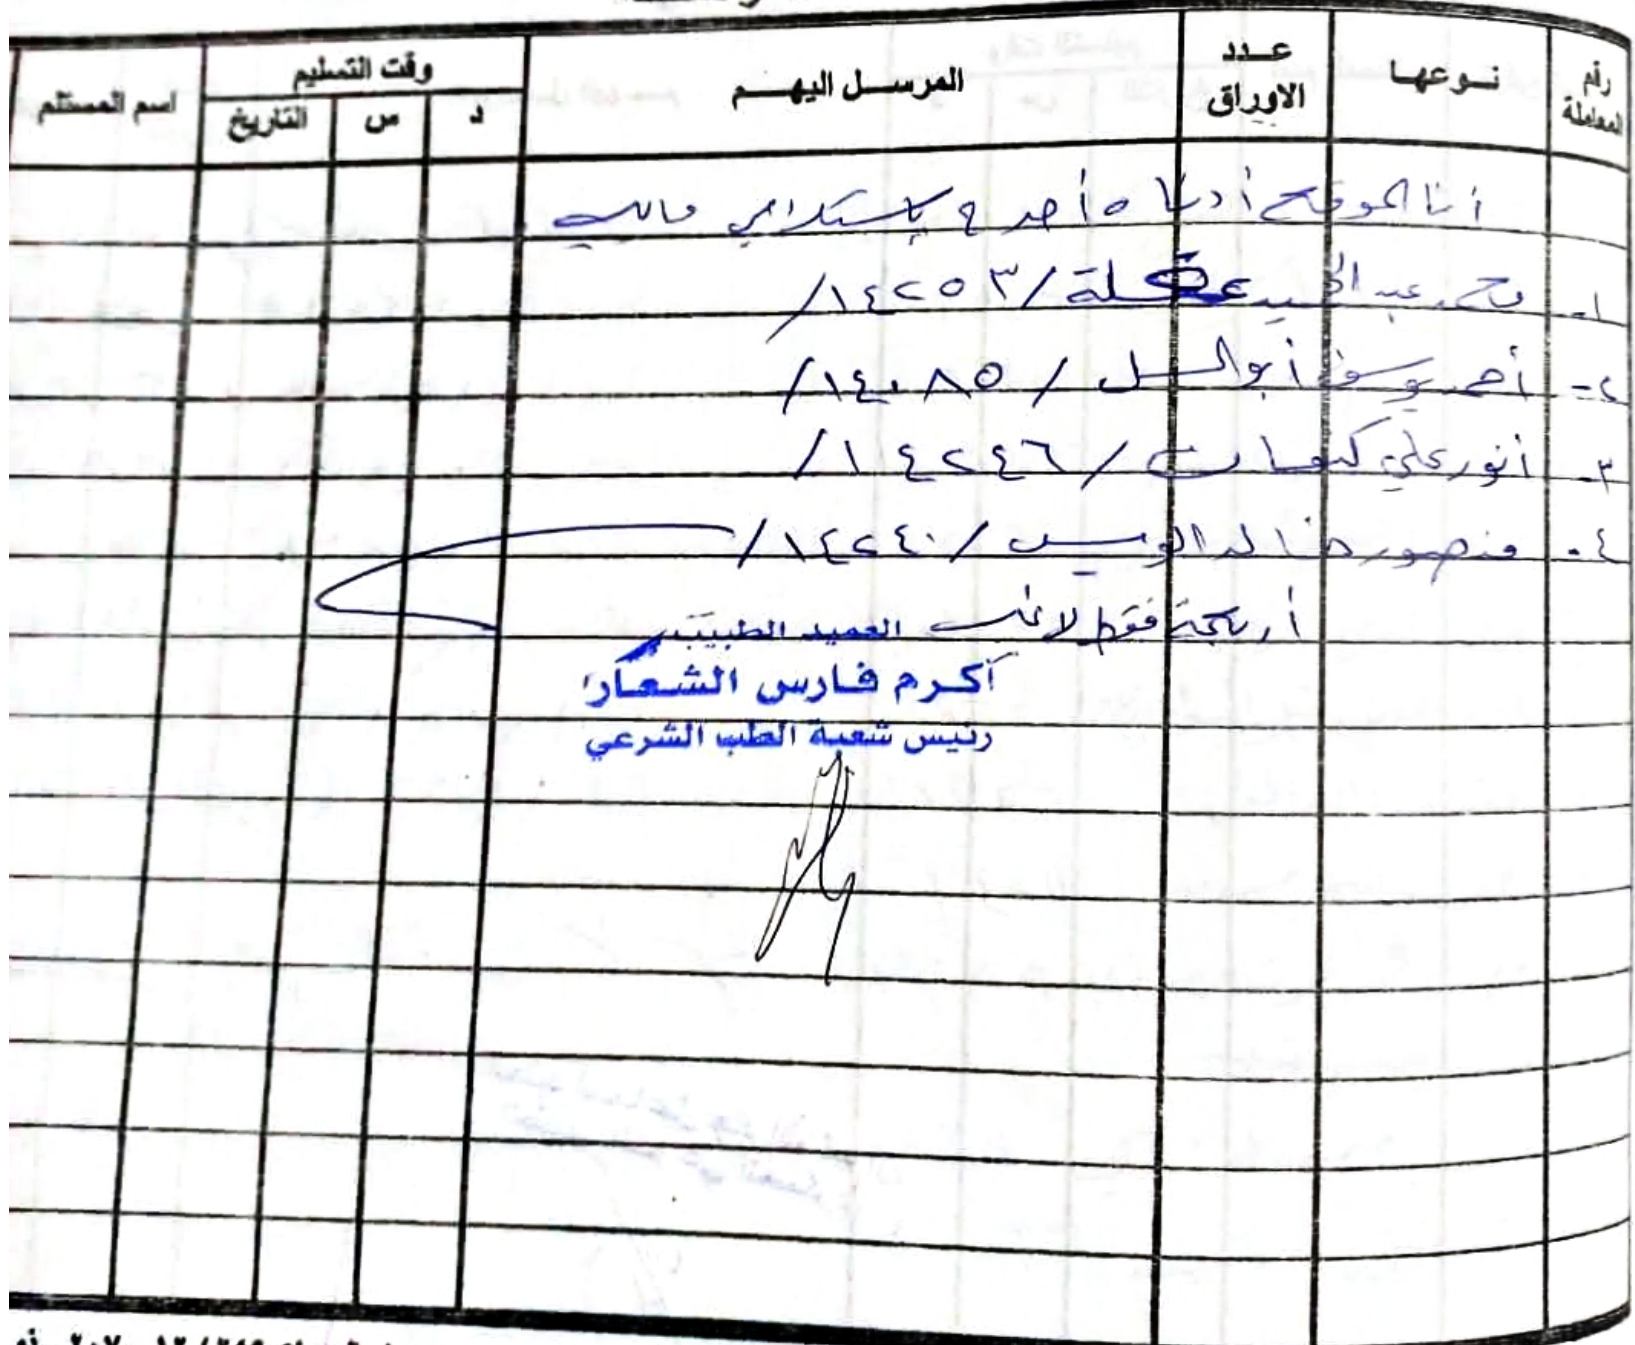 رقم المعاملة
نوعها
عدد الاوراق
المرسل اليهم
وقت التسليم
د
س
التاريخ
اسم المستلم
أنا الموقع أدناه أصرح باستلامي
١- محمد عبد الحميد عكلة /١٤٢٥٣/
٢- أحمد يوسف أبو السل /١٤٠٨٥/
٣- أنور علي /١٤٢٤٦/
٤- منصور خالد الويس /١٤٢٤٠/
أربعة فقط لاغير
العميد الطبيب
أكرم فارس الشعار
رئيس شعبة الطب الشرعي